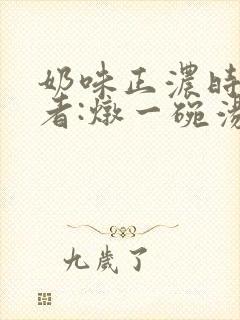 奶味正濃時
者:燉一碗湯
九歲了